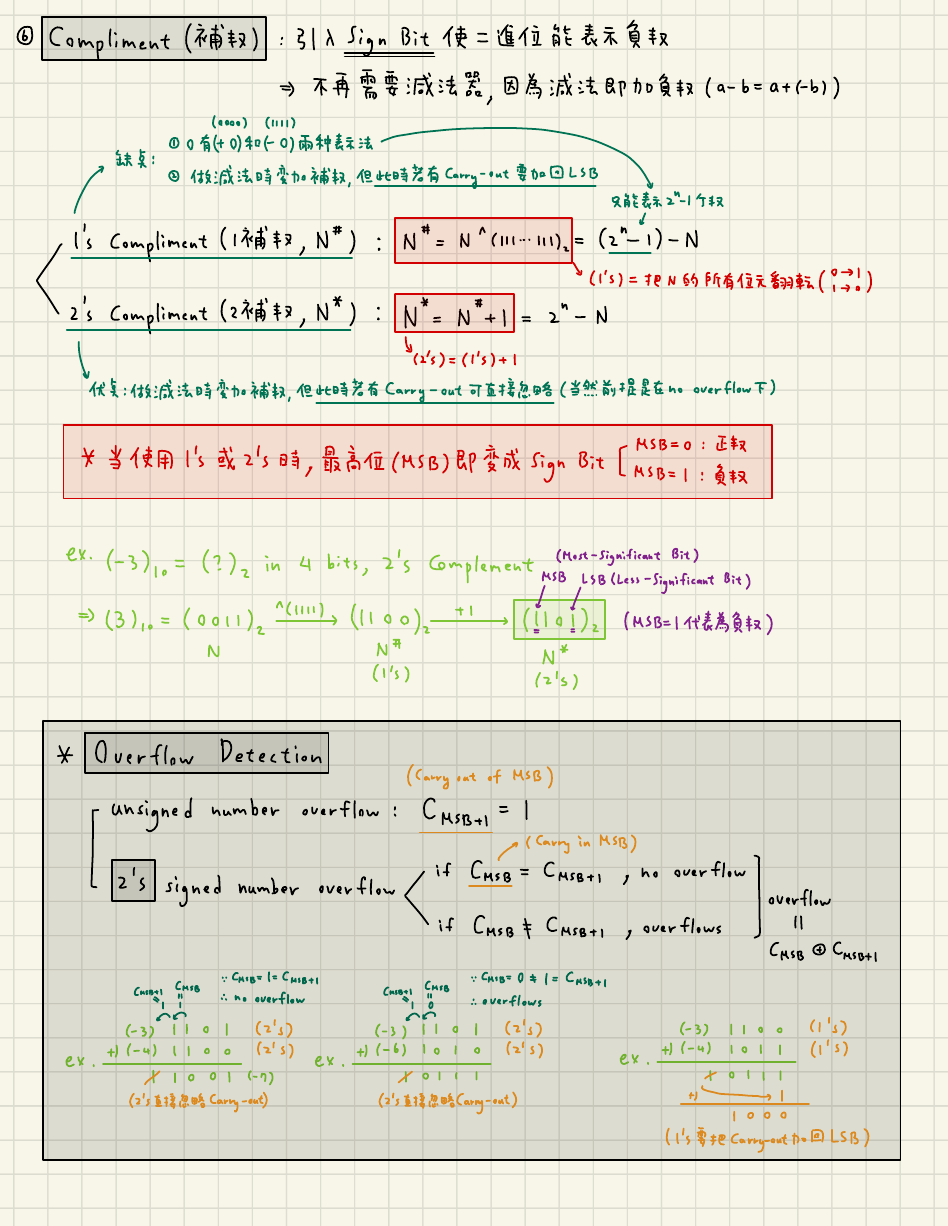 ⑥ Compliment (補数) : 引入 Sign Bit 使二進位能表示負数
⇒ 不再需要減法器, 因為減法即加負数 (a-b=a+(-b))
(0000) (1111)
缺点: ① 0有(+0)和(-0)兩种表示法
② 做減法時変加補数, 但此時若有Carry-out要加回LSB
只能表示2ⁿ-1个数
1's Compliment (1補数, N#) : N# = N ^ (111...111)₂ = (2ⁿ-1) - N
(1's) = 把N的所有位元翻転 (0→1 1→0)
2's Compliment (2補数, N*) : N* = N# + 1 = 2ⁿ - N
(2's) = (1's) + 1
优点: 做減法時変加補数, 但此時若有Carry-out可直接忽略 (当然前提是在no overflow下)
* 当使用1's或2's時, 最高位(MSB)即変成Sign Bit [ MSB=0 : 正数
MSB=1 : 負数
ex. (-3)₁₀ = (?)₂ in 4 bits, 2's Complement
(Most-Significant Bit)
MSB LSB (Less-Significant Bit)
⇒ (3)₁₀ = (0011)₂ ^(1111)→ (1100)₂ +1→ (1101)₂ (MSB=1代表為負数)
N N# N*
(1's) (2's)
* Overflow Detection
(Carry out of MSB)
unsigned number overflow : C_MSB+1 = 1
(Carry in MSB)
2's signed number overflow
if C_MSB = C_MSB+1 , no overflow
if C_MSB ≠ C_MSB+1 , overflows
overflow
=
C_MSB ⊕ C_MSB+1
C_MSB+1 = 1 C_MSB = 1 ∵ C_MSB = 1 = C_MSB+1
∴ no overflow
(-3) 1101 (2's)
ex. +) (-4) 1100 (2's)
1 1001 (-7)
(2's直接忽略Carry-out)
C_MSB+1 = 1 C_MSB = 0 ∵ C_MSB = 0 ≠ 1 = C_MSB+1
∴ overflows
(-3) 1101 (2's)
ex. +) (-6) 1010 (2's)
1 0111
(2's直接忽略Carry-out)
(-3) 1100 (1's)
ex. +) (-4) 1011 (1's)
1 0111
+) 1
1000
(1's要把Carry-out加回LSB)